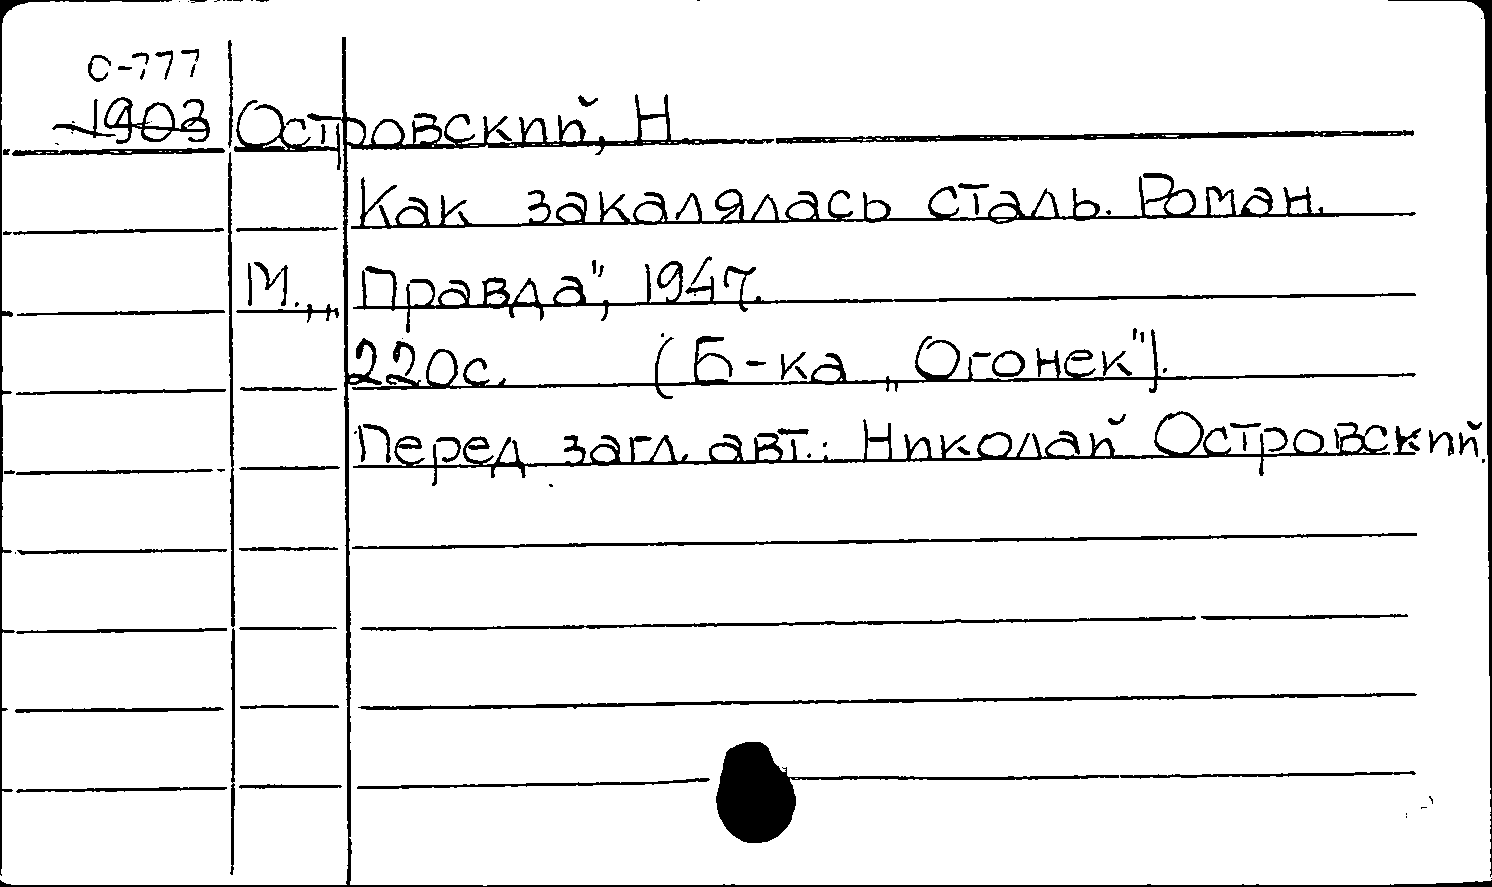 О-777
1903 Островский, Н
Как закалялась сталь. Роман.
М., „Правда", 1947.
220с. (Б-ка „Огонек").
Перед загл. авт.: Николай Островский.